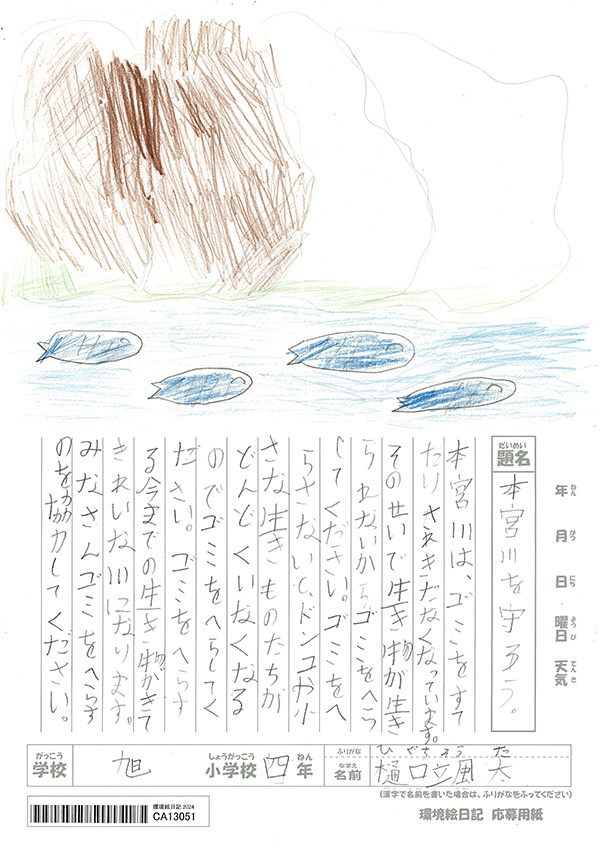 年ねん 月がつ 日にち 曜日ようび 天気てんき
題名だいめい
本宮川を守ろう。
本宮川は、ゴミをすて
たりされきたなくなっています。
そのせいで生き物が生き
られないからゴミをへら
してください。ゴミをへ
らさないと、ドンコや小
さな生きものたちが
どんどんいなくなる
のでゴミをへらしてく
ださい。ゴミをへらす
る今までの生き物がきて
きれいな川になります。
みなさんゴミをへらす
のを協力してください。
がっこう
学校
旭
しょうがっこう
小学校
四
ねん
年
ふりがな
なまえ
名前
樋口立風太
(漢字で名前を書いた場合は、ふりがなをふってください)
環境絵日記 2024
CA13051
環境絵日記 応募用紙